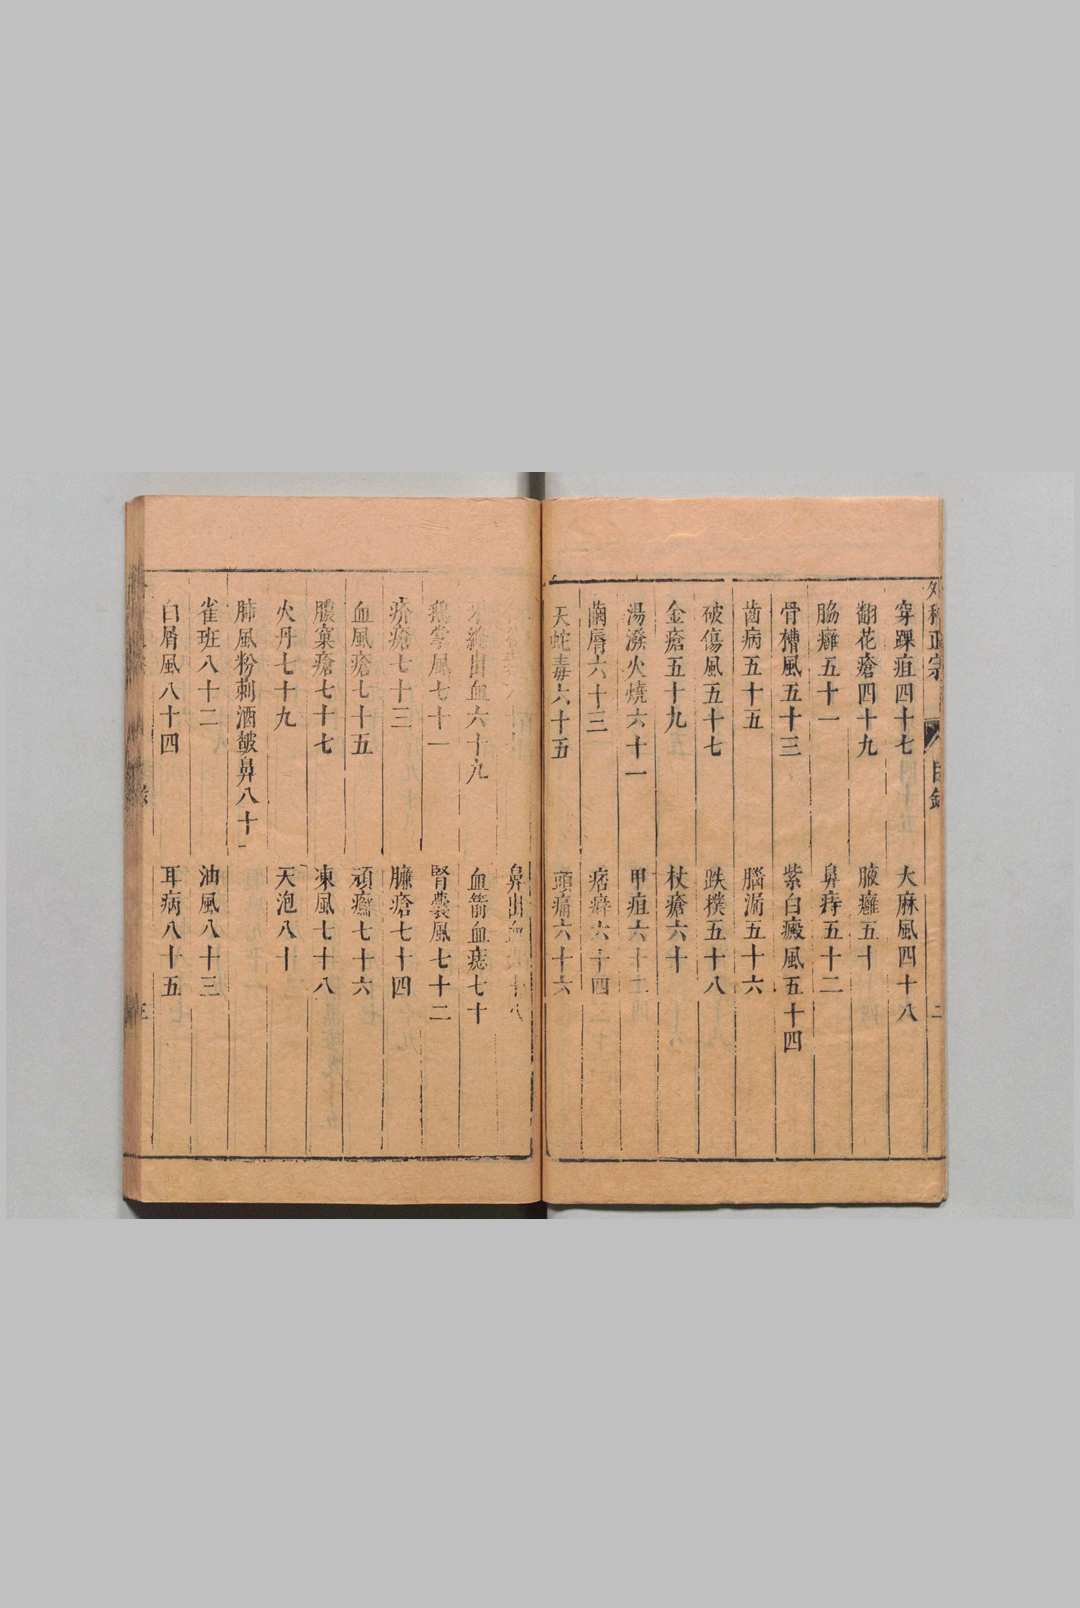 外科正宗 目錄 二
穿踝疽四十七 大麻風四十八
翻花瘡四十九 腋癰五十
脇癰五十一 鼻痔五十二
骨槽風五十三 紫白癜風五十四
齒病五十五 腦漏五十六
破傷風五十七 跌撲五十八
金瘡五十九 杖瘡六十
湯潑火燒六十一 甲疽六十二
繭唇六十三 痞癖六十四
天蛇毒六十五 頭痛六十六
鼻出血六十八
牙縫出血六十九 血箭血痣七十
鵝掌風七十一 腎囊風七十二
疥瘡七十三 臁瘡七十四
血風瘡七十五 頑癬七十六
膿窠瘡七十七 凍風七十八
火丹七十九 天泡八十
肺風粉刺酒皶鼻八十一
雀班八十二 油風八十三
白屑風八十四 耳病八十五
三